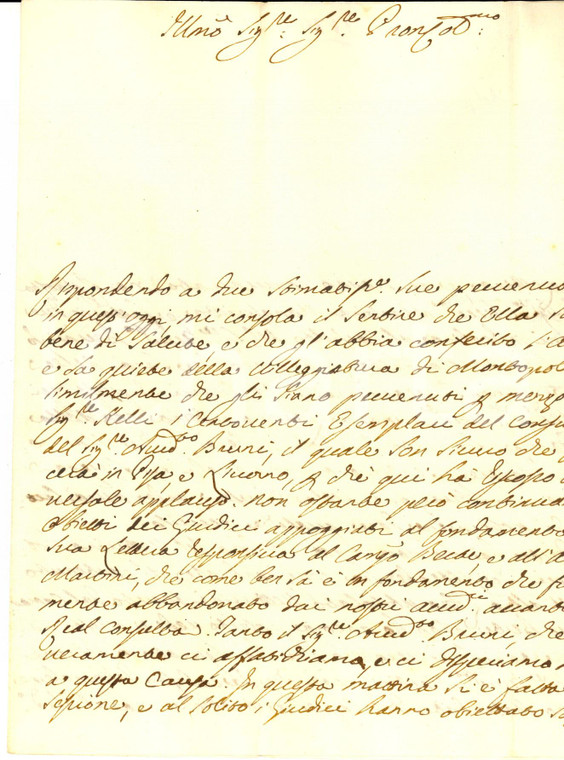 Illmo Sigre: Sigre: Pron Col mo:
Rispondendo a due stimatisse. sue pervenu
in quest'oggi, mi consola il sentire che Ella s
bene di Salute, e che gl'abbia conferito l'a
e la quiete della Villeggiatura di Montopol
similmente che gli siano pervenuti p mezzo
Sigre Kelli i Esemplari del
del Sigre Audre Bruni, il quale son sicuro che
cerà in Pisa e Livorno, p che qui ha
versale applauso. Non ostante però continua
obietti dei Giudici appoggiati al fondamento
sua Lettera al e all'
Martini, che come ben sà è un fondamento che f
mente abbandonato dai nostri quant
Real Consulta. Tanto il Sigre Audre Bruni, che
veramente ci affatidiamo, e ci
a questa Causa. In questa mattina si è fatta
sessione, e al solito i Giudici hanno obiettato s